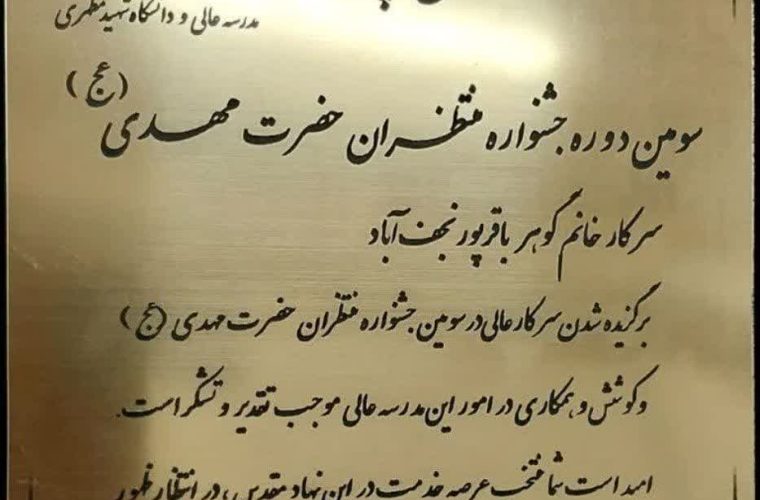 مدرسه عالی و دانشگاه شهید مطهری
سومین دوره جشنواره منتظران حضرت مهدی (عج)
سرکار خانم گوهر باقرپور نجف آباد
برگزیده شدن سرکارعالی در سومین جشنواره منتظران حضرت مهدی (عج)
و کوشش و همکاری در امور این مدرسه عالی موجب تقدیر و تشکر است.
امید است شما منتخب عرصه خدمت در این نهاد مقدس، در انتظار ظهور